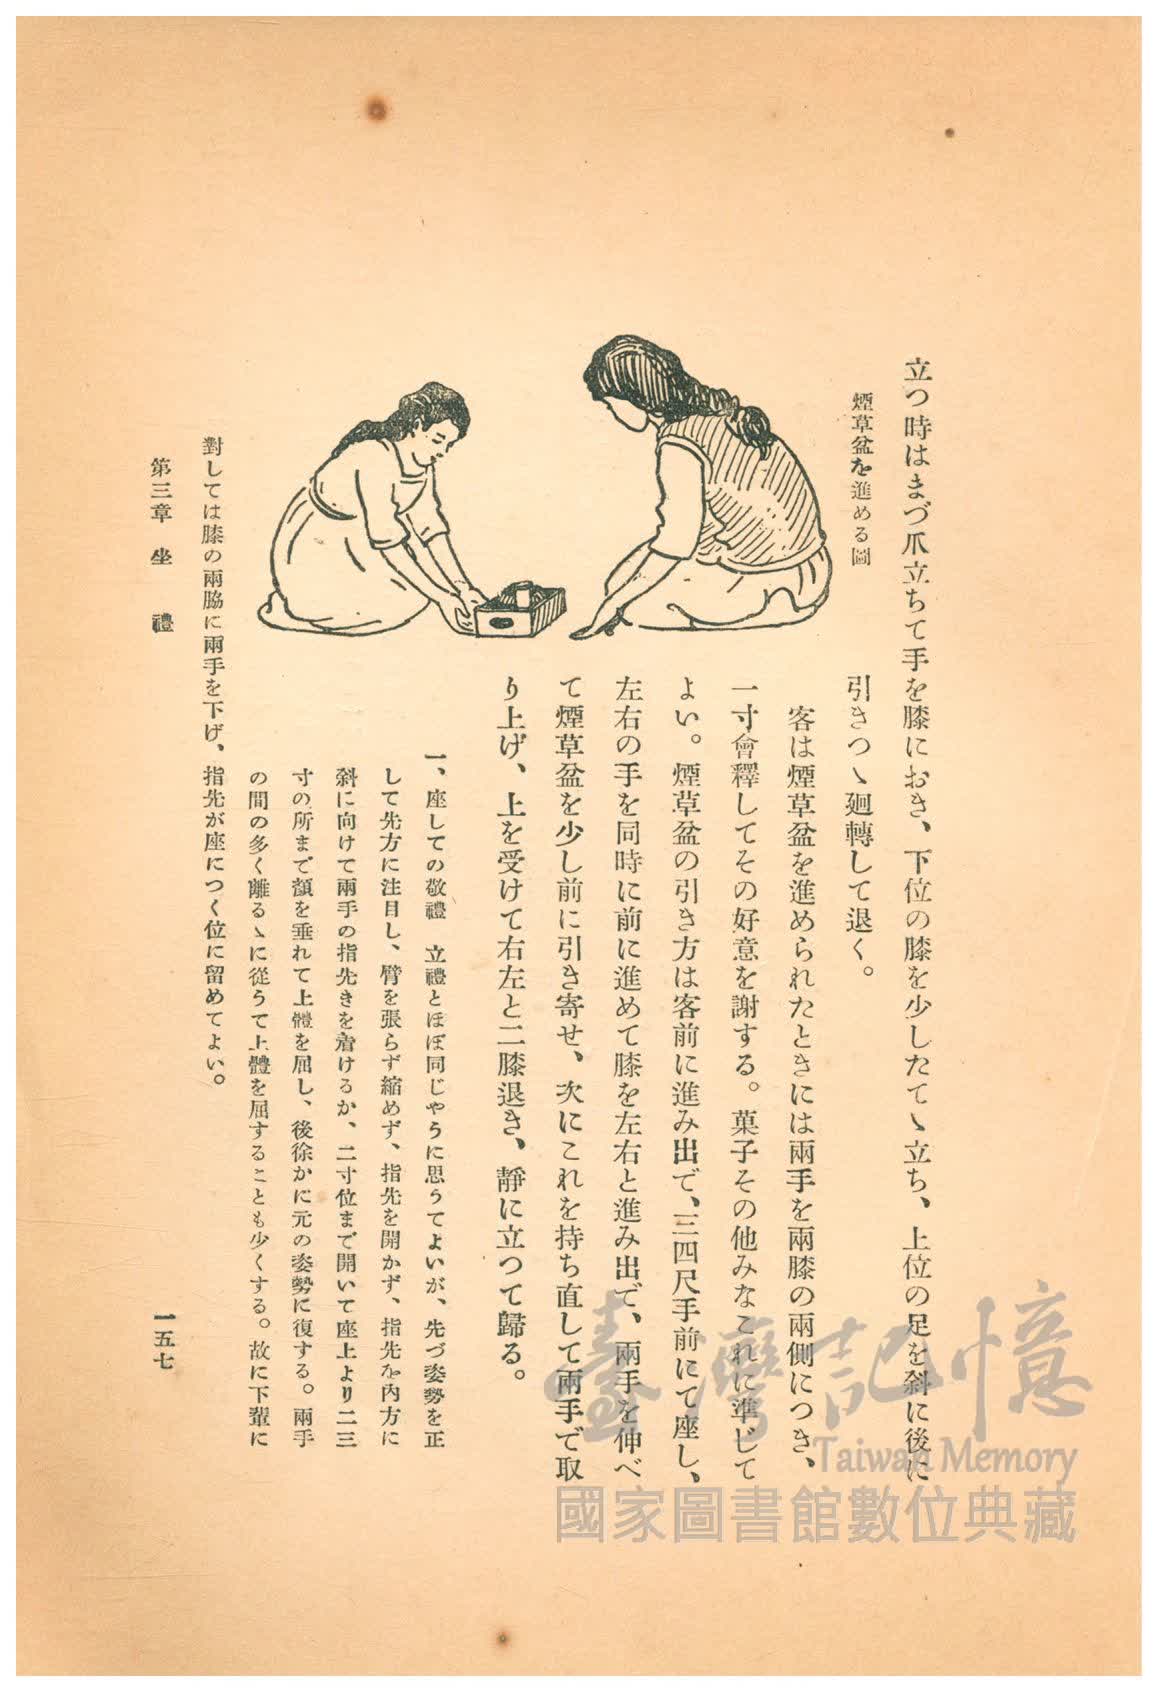 立つ時はまづ爪立ちて手を膝におき、下位の膝を少したてゝ立ち、上位の足を斜に後に
引きつゝ廻轉して退く。
煙草盆を進める圖
客は煙草盆を進められたときには兩手を兩膝の兩側につき、
一寸會釋してその好意を謝する。菓子その他みなこれに準じて
よい。煙草盆の引き方は客前に進み出で、三四尺手前にて座し、
左右の手を同時に前に進めて膝を左右と進み出で、兩手を伸べ
て煙草盆を少し前に引き寄せ、次にこれを持ち直して兩手で取
り上げ、上を受けて右左と二膝退き、靜に立つて歸る。
一、座しての敬禮　立禮とほぼ同じやうに思うてよいが、先づ姿勢を正
して先方に注目し、臂を張らず縮めず、指先を開かず、指先を內方に
斜に向けて兩手の指先きを着けるか、二寸位まで開いて座上より二三
寸の所まで頭を垂れて上體を屈し、後徐かに元の姿勢に復する。兩手
の間の多く離るゝに從うて上體を屈することも少くする。故に下輩に
對しては膝の兩脇に兩手を下げ、指先が座につく位に留めてよい。
第三章　坐　禮
一五七
臺灣記憶
Taiwan Memory
國家圖書館數位典藏